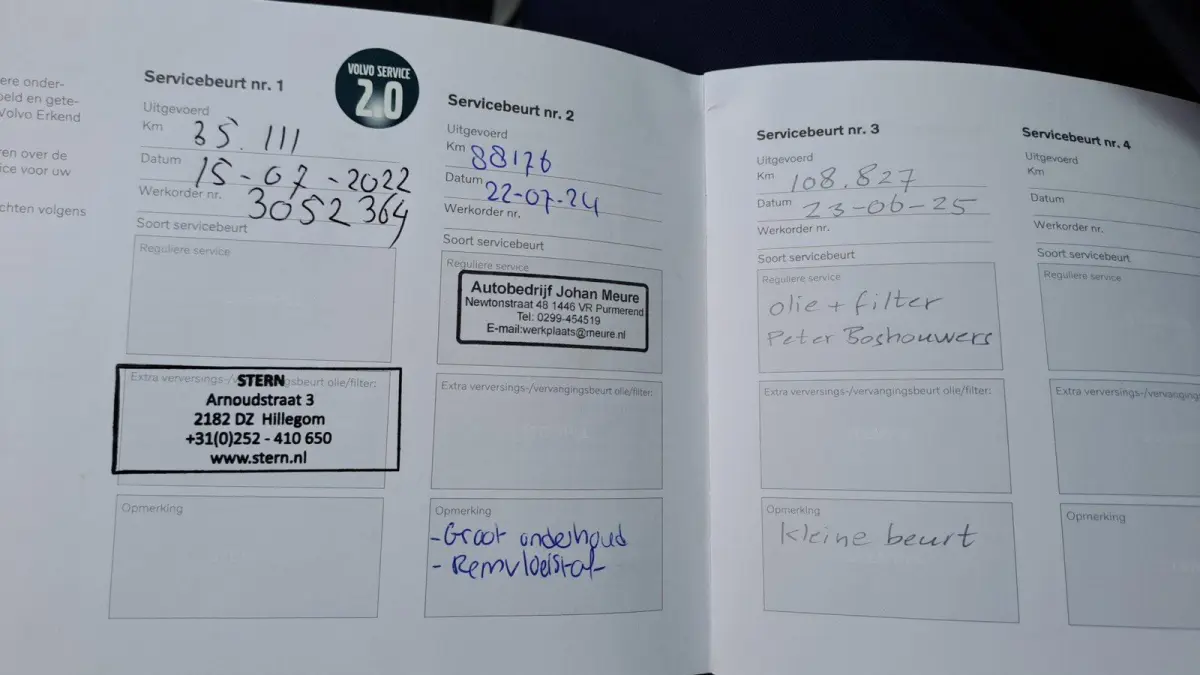 ere onder-
peld en gete-
Volvo Erkend
ren over de
ice voor uw
chten volgens
Servicebeurt nr. 1
VOLVO SERVICE
2.0
Uitgevoerd
Km 35.111
Datum 15-07-2022
Werkorder nr. 3052364
Soort servicebeurt
Reguliere service
Extra verversings-/vervangingsbeurt olie/filter:
STERN
Arnoudstraat 3
2182 DZ Hillegom
+31(0)252 - 410 650
www.stern.nl
Opmerking
Servicebeurt nr. 2
Uitgevoerd
Km 88176
Datum 22-07-24
Werkorder nr.
Soort servicebeurt
Reguliere service
Autobedrijf Johan Meure
Newtonstraat 48 1446 VR Purmerend
Tel: 0299-454519
E-mail:werkplaats@meure.nl
Extra verversings-/vervangingsbeurt olie/filter:
Opmerking
- Groot onderhoud
- Remvloeistof
Servicebeurt nr. 3
Uitgevoerd
Km 108.827
Datum 23-06-25
Werkorder nr.
Soort servicebeurt
Reguliere service
olie + filter
Peter Boshouwers
Extra verversings-/vervangingsbeurt olie/filter:
Opmerking
kleine beurt
Servicebeurt nr. 4
Uitgevoerd
Km
Datum
Werkorder nr.
Soort servicebeurt
Reguliere service
Extra verversings-/vervangings
Opmerking